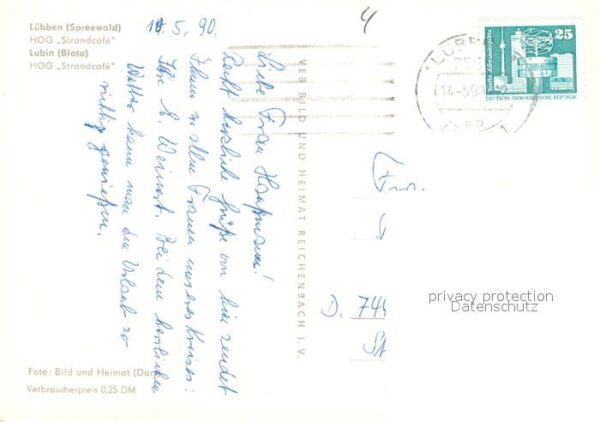 Lübben (Spreewald)
HOG „Strandcafé“
Lubin (Błota)
HOG „Strandcafé“
5. 90.
4
Liebe Frau Hauptmann!
Recht herzliche Grüße von hier sendet
Ihnen u. allen Frauen unseres Kreises:
Ihre E. Weinert. Bei dem herrlichen
Wetter kann man den Urlaub so
richtig genießen.
VEB BILD UND HEIMAT REICHENBACH I. V.
25
DEUTSCHE DEMOKRATISCHE REPUBLIK
LÜBBEN
14.-5.90
Frau
D. 744
privacy protection
Datenschutz
Foto: Bild und Heimat
Verbraucherpreis 0,25 DM